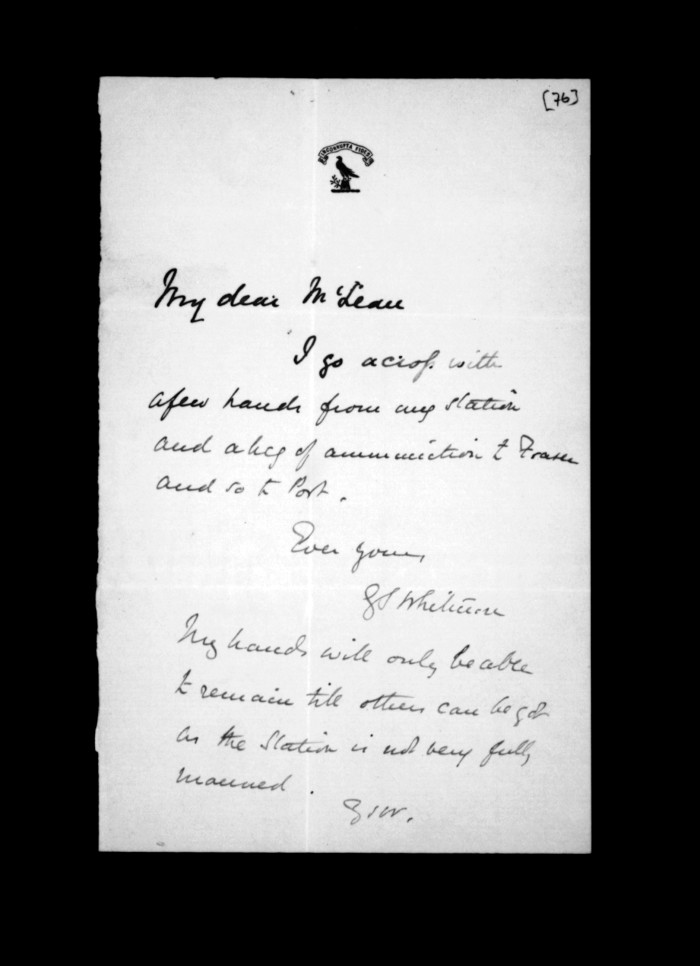 [76]
INCORRUPTA FIDES
My dear McLean
I go across with
a few hands from my station
and a keg of ammunition to Fraser
and so to Port.
Ever yours
GSWhitmore
My hands will only be able
to remain till others can be got
as the Station is not very fully
manned.
GSW.